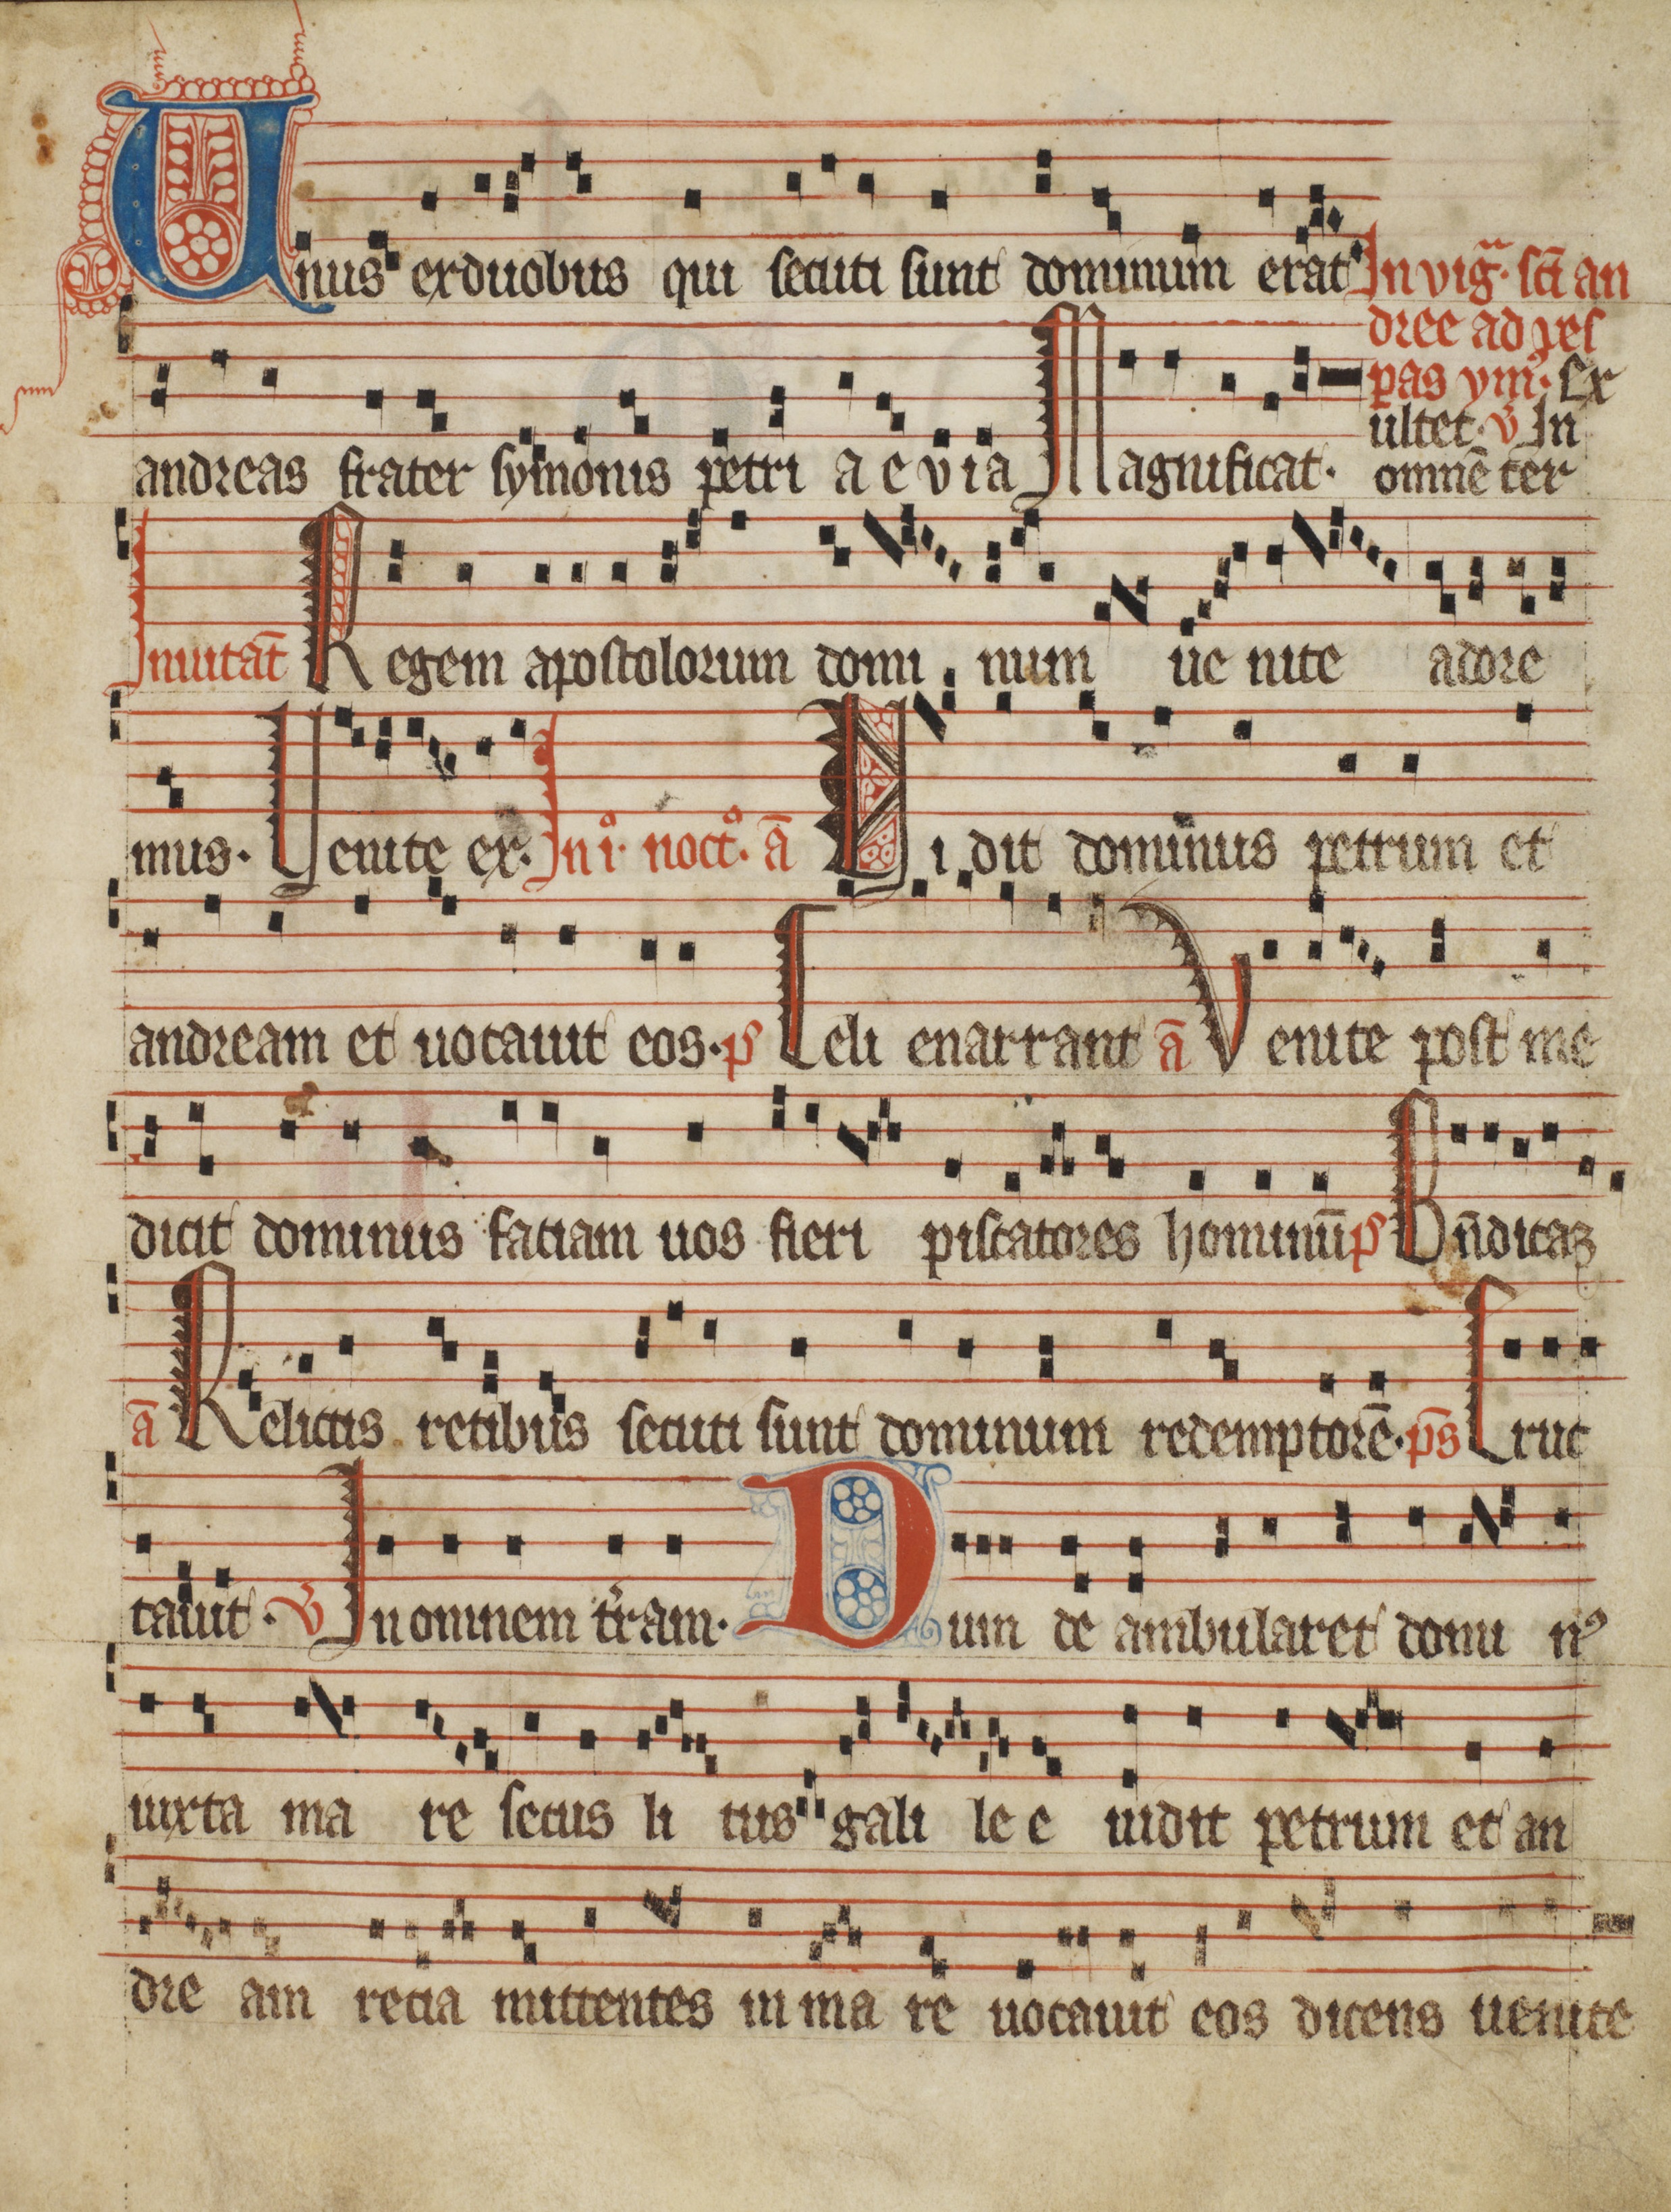 Unus ex duobus qui secuti sunt dominum erat In vigꝉ. sc̄i an
dree ad ves
pas ym̄. Ex
ultet. V̄ In
omnē ter
andreas frater symonis petri a e v i a Magnificat.
Inuitat̄ Regem apostolorum domi num ue nite adore
mus. Venite ex. In i° noct°. ā Vidit dominus petrum et
andream et uocauit eos. p̄s Celi enarrant ā Venite post me
dicit dominus faciam uos fieri piscatores hominū p̄s Bn̄dicaꝫ
ā Relictis retibus secuti sunt dominum redemptorē. p̄s Eruc
tauit. V̄ In omnem tr̄am. Dum de ambularet domi nꝰ
iuxta ma re secus li tus gali le e uidit petrum et an
dre am recia mittentes in ma re uocauit eos dicens uenite